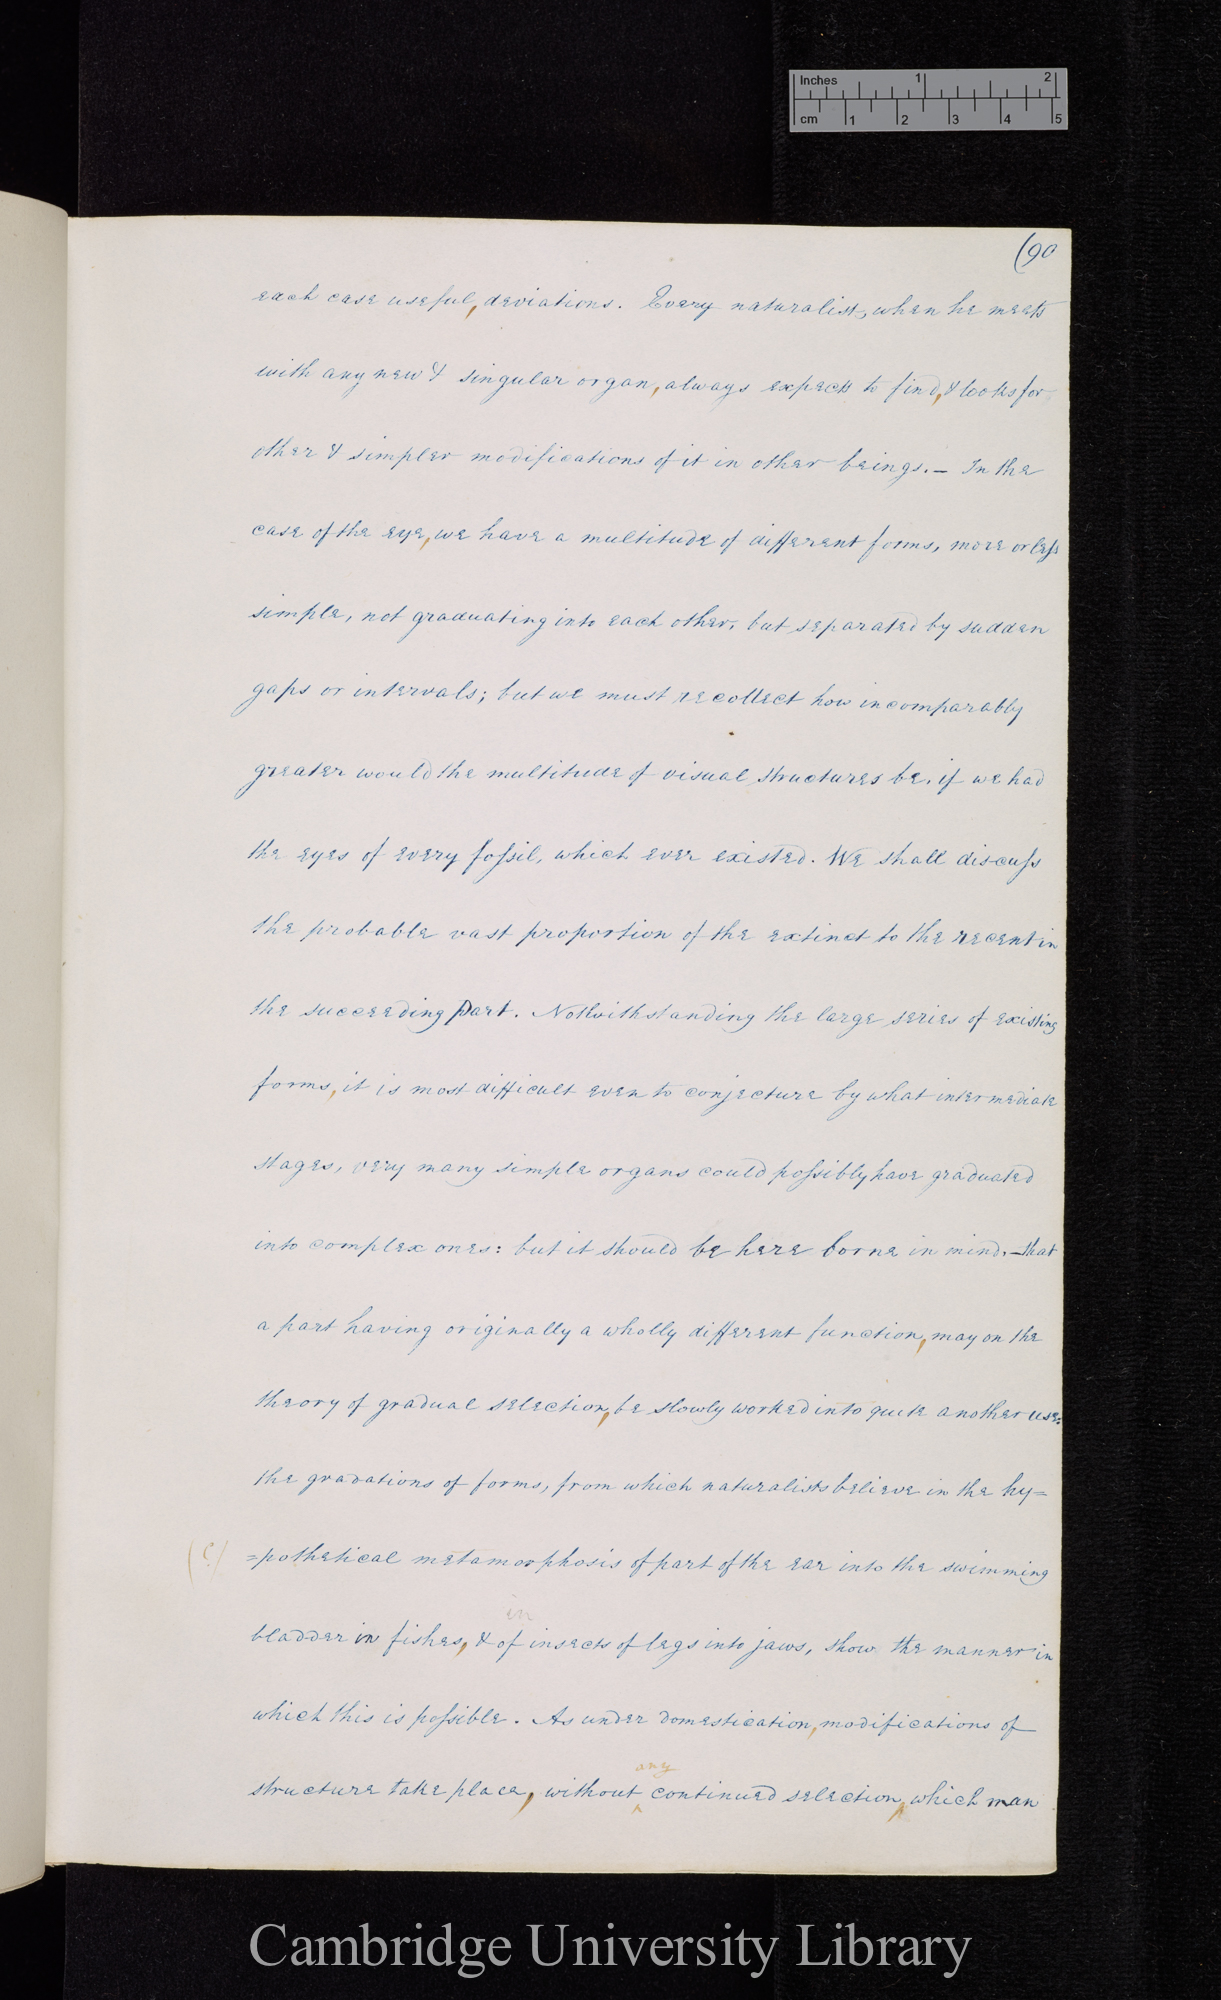 Inches 1 2
cm 1 2 3 4 5
(90
each case useful, deviations. Every naturalist, when he meets
with any new & singular organ, always expects to find, & looks for
other & simpler modifications of it in other beings. — In the
case of the eye, we have a multitude of different forms, more or less
simple, not graduating into each other, but separated by sudden
gaps or intervals; but we must recollect how incomparably
greater would the multitude of visual structures be, if we had
the eyes of every fossil, which ever existed. We shall discuss
the probable vast proportion of the extinct to the recent in
the succeeding Part. Notwithstanding the large series of existing
forms, it is most difficult even to conjecture by what intermediate
stages, very many simple organs could possibly have graduated
into complex ones: but it should be here borne in mind, that
a part having originally a wholly different function, may on the
theory of gradual selection, be slowly worked into quite another use:
the gradations of forms, from which naturalists believe in the hy=
=pothetical metamorphosis of part of the ear into the swimming
in
bladder in fishes, & of insects of legs into jaws, show the manner in
which this is possible. As under domestication, modifications of
any
structure take place, without continued selection, which man
Cambridge University Library